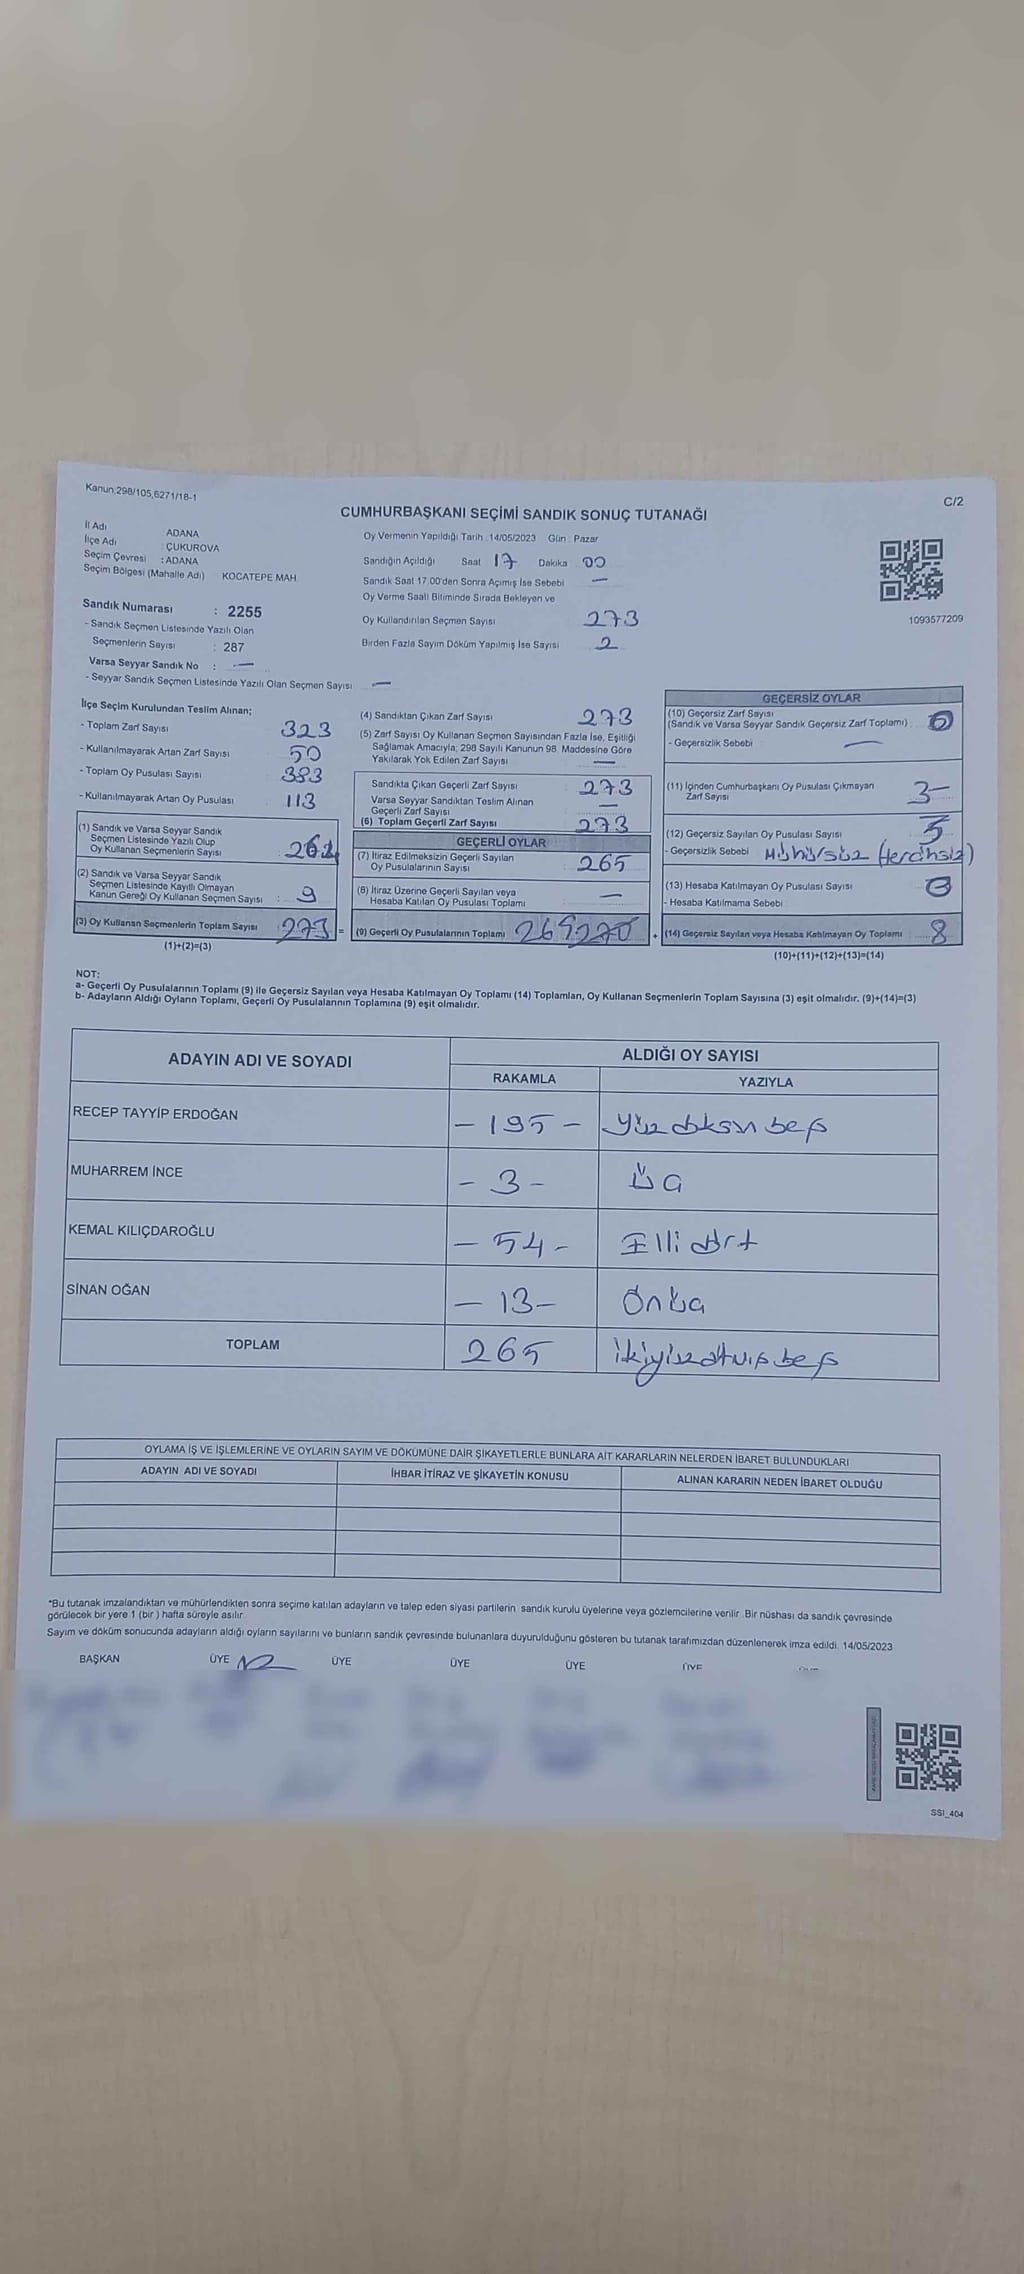 Kanun;298/105,6271/18-1
C/2
CUMHURBAŞKANI SEÇİMİ SANDIK SONUÇ TUTANAĞI
İl Adı ADANA
İlçe Adı : ÇUKUROVA
Seçim Çevresi : ADANA
Seçim Bölgesi (Mahalle Adı) : KOCATEPE MAH.
Sandık Numarası : 2255
- Sandık Seçmen Listesinde Yazılı Olan
Seçmenlerin Sayısı : 287
Varsa Seyyar Sandık No : —
- Seyyar Sandık Seçmen Listesinde Yazılı Olan Seçmen Sayısı —
Oy Vermenin Yapıldığı Tarih : 14/05/2023 Gün : Pazar
Sandığın Açıldığı Saat 17 Dakika 00
Sandık Saat 17.00'den Sonra Açımış İse Sebebi —
Oy Verme Saati Bitiminde Sırada Bekleyen ve
Oy Kullandırılan Seçmen Sayısı 273
Birden Fazla Sayım Döküm Yapılmış İse Sayısı 2
1093577209
İlçe Seçim Kurulundan Teslim Alınan;
- Toplam Zarf Sayısı 323
- Kullanılmayarak Artan Zarf Sayısı 50
- Toplam Oy Pusulası Sayısı 383
- Kullanılmayarak Artan Oy Pusulası 113
(1) Sandık ve Varsa Seyyar Sandık
Seçmen Listesinde Yazılı Olup
Oy Kullanan Seçmenlerin Sayısı :
(2) Sandık ve Varsa Seyyar Sandık
Seçmen Listesinde Kayıtlı Olmayan
Kanun Gereği Oy Kullanan Seçmen Sayısı : 9
(3) Oy Kullanan Seçmenlerin Toplam Sayısı 273 =
(1)+(2)=(3)
(4) Sandıktan Çıkan Zarf Sayısı 273
(5) Zarf Sayısı Oy Kullanan Seçmen Sayısından Fazla İse, Eşitliği
Sağlamak Amacıyla; 298 Sayılı Kanunun 98. Maddesine Göre
Yakılarak Yok Edilen Zarf Sayısı —
Sandıkta Çıkan Geçerli Zarf Sayısı : 273
Varsa Seyyar Sandıktan Teslim Alınan
Geçerli Zarf Sayısı —
(6) Toplam Geçerli Zarf Sayısı 273
GEÇERLİ OYLAR
(7) İtiraz Edilmeksizin Geçerli Sayılan
Oy Pusulalarının Sayısı : 265
(8) İtiraz Üzerine Geçerli Sayılan veya
Hesaba Katılan Oy Pusulası Toplamı —
(9) Geçerli Oy Pusulalarının Toplamı +
GEÇERSİZ OYLAR
(10) Geçersiz Zarf Sayısı
(Sandık ve Varsa Seyyar Sandık Geçersiz Zarf Toplamı)
- Geçersizlik Sebebi —
(11) İçinden Cumhurbaşkanı Oy Pusulası Çıkmayan
Zarf Sayısı 3
(12) Geçersiz Sayılan Oy Pusulası Sayısı 5
- Geçersizlik Sebebi Mühürsüz (tercihsiz)
(13) Hesaba Katılmayan Oy Pusulası Sayısı
- Hesaba Katılmama Sebebi
(14) Geçersiz Sayılan veya Hesaba Katılmayan Oy Toplamı 8
(10)+(11)+(12)+(13)=(14)
NOT:
a- Geçerli Oy Pusulalarının Toplamı (9) ile Geçersiz Sayılan veya Hesaba Katılmayan Oy Toplamı (14) Toplamları, Oy Kullanan Seçmenlerin Toplam Sayısına (3) eşit olmalıdır. (9)+(14)=(3)
b- Adayların Aldığı Oyların Toplamı, Geçerli Oy Pusulalarının Toplamına (9) eşit olmalıdır.
ADAYIN ADI VE SOYADI
ALDIĞI OY SAYISI
RAKAMLA YAZIYLA
RECEP TAYYİP ERDOĞAN - 195 - Yüz doksan beş
MUHARREM İNCE - 3 - Üç
KEMAL KILIÇDAROĞLU - 54 - Elli dört
SİNAN OĞAN - 13 - Onüç
TOPLAM 265 ikiyüzaltmışbeş
OYLAMA İŞ VE İŞLEMLERİNE VE OYLARIN SAYIM VE DÖKÜMÜNE DAİR ŞİKAYETLERLE BUNLARA AİT KARARLARIN NELERDEN İBARET BULUNDUKLARI
ADAYIN ADI VE SOYADI İHBAR İTİRAZ VE ŞİKAYETİN KONUSU ALINAN KARARIN NEDEN İBARET OLDUĞU
*Bu tutanak imzalandıktan ve mühürlendikten sonra seçime katılan adayların ve talep eden siyasi partilerin sandık kurulu üyelerine veya gözlemcilerine verilir. Bir nüshası da sandık çevresinde
görülecek bir yere 1 (bir ) hafta süreyle asılır.
Sayım ve döküm sonucunda adayların aldığı oyların sayılarını ve bunların sandık çevresinde bulunanlara duyurulduğunu gösteren bu tutanak tarafımızdan düzenlenerek imza edildi. 14/05/2023
BAŞKAN ÜYE ÜYE ÜYE ÜYE ÜYE
SSI_404